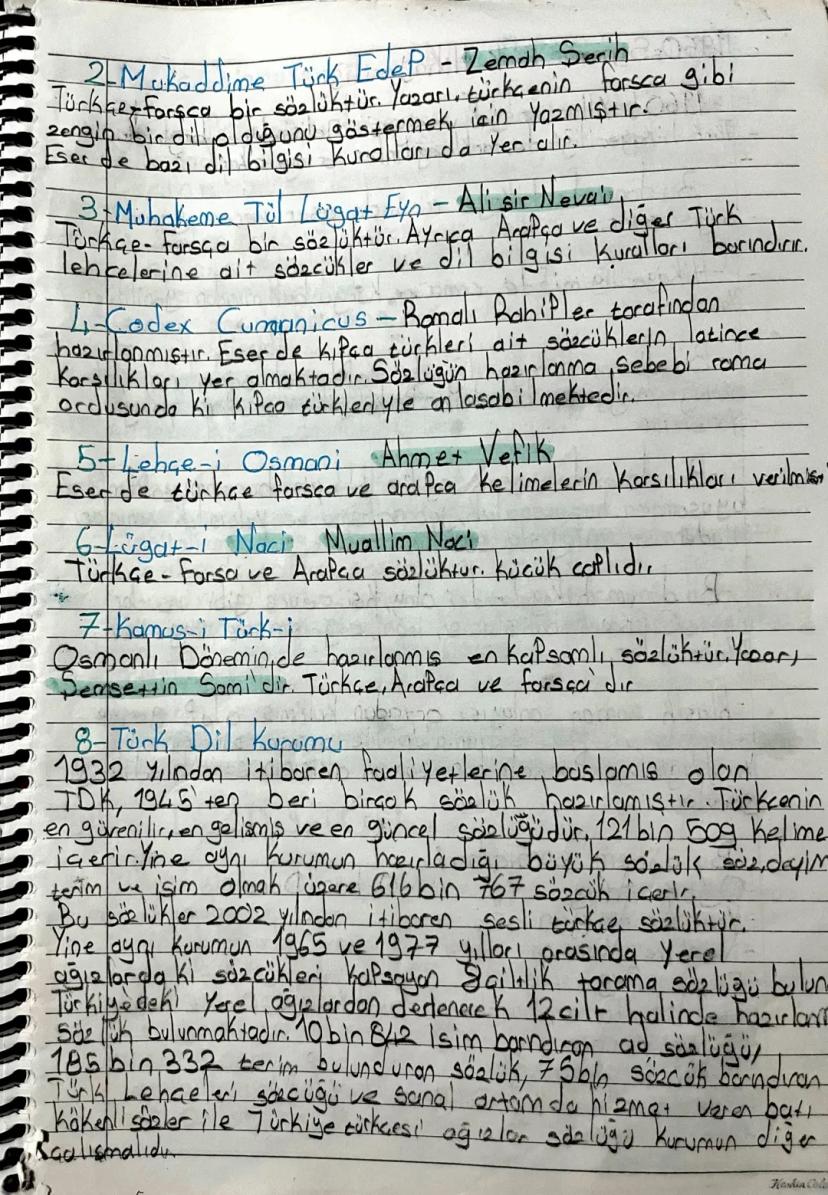 2-Mukaddime Türk Edep - Zemah Serih
Türkçe-farsça bir sözlüktür. Yazarı, türkçenin farsca gibi
zengin bir dil olduğunu göstermek için Yazmıştır.
Eser de bazı dil bilgisi kuralları da Yer alır.
3-Muhakeme Tül Lügat Eyn - Ali sir Nevai
Türkçe-farsça bir sözlüktür. Ayrıca Arapça ve diğer Türk
lehcelerine ait sözcükler ve dil bilgisi kuralları barındırır.
4-Codex Cumanicus - Romalı Rahipler tarafından
hazırlanmıstır. Eser de Kıpça türkleri ait sözcüklerin latince
Karsılıkları yer almaktadır. Sözlüğün hazırlanma sebebi roma
ordusunda ki Kıpca türkleriyle anlasabilmektedir.
5-Lehçe-i Osmani Ahmet Vefik
Eser de türkçe farsca ve arapca Kelimelerin karsılıkları verilmisr
6-Lügat-i Naci Muallim Naci
Türkçe-Farsa ve Arapça sözlüktur. Kücük caplıdır
7-Kamus-i Türk-i
Osmanlı Döneminde hazırlanmıs en kapsamlı sözlüktür. Yazarı
Semsettin Sami'dir. Türkçe, Arapça ve farsça'dır
8-Türk Dil Kurumu
1932 yılından itibaren faaliyetlerine baslamıs olan
TDK, 1945'ten beri birçok sözlük hazırlamıstır. Türkcenin
en güvenilir, en gelismiş ve en güncel sözlüğüdür. 121 bin 509 Kelime
içerir. Yine aynı kurumun hazırladığı büyük sözlük söz, deyim
terim ve isim olmak üzere 616 bin 767 sözcük içerir.
Bu sözlükler 2002 yılından itibaren sesli türkçe sözlüktür.
Yine aynı kurumun 1965 ve 1977 yılları arasında Yerel
ağızlarda ki sözcükleri kapsayan 8 ciltlik tarama sözlüğü bulun
Türkiyedeki Yerel ağızlardan derlenerek 12 cilt halinde hazırlanı
sözlük bulunmaktadır. 10 bin 842 isim barındıran ad sözlüğü,
185 bin 332 terim bulunduran sözlük, 75 bin sözcük barındıran
Türk Lehçeleri sözcüğü ve sanal ortamda hizmet veren batı
kökenli sözler ile Türkiye türkcesi ağızlar sözlüğü kurumun diğer
calısmalıdır.